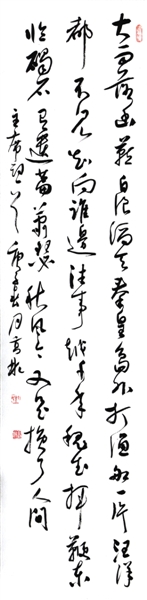 大雨落幽燕白浪滔天秦皇島外打漁船一片汪洋
都不見知向誰邊往事越千年魏武揮鞭東
臨碣石有遺篇蕭瑟秋風今又是換了人間
主席詞一首